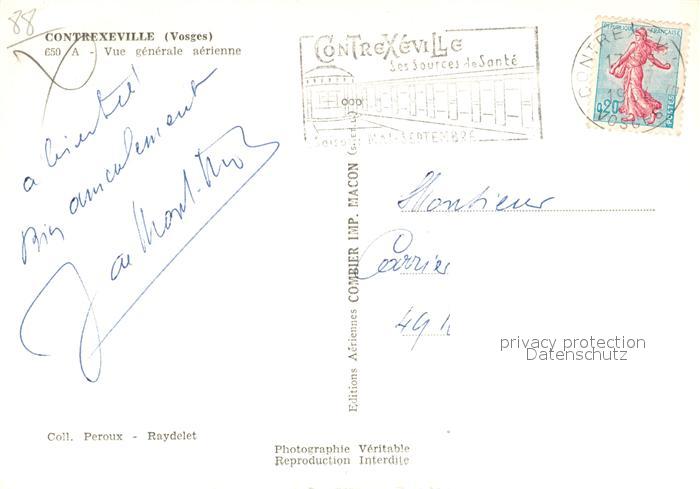 88
CONTREXEVILLE (Vosges)
650 A - Vue générale aérienne
à bientôt!
Bien amicalement
CONTREXÉVILLE
Ses Sources de Santé
MAI-SEPTEMBRE
REPUBLIQUE FRANÇAISE
0,20
POSTES
CONTREXEVILLE
17
19
VOSGES
Editions Aériennes COMBIER IMP. MACON
Monsieur
Carrier
49 h
privacy protection
Datenschutz
Coll. Peroux - Raydelet
Photographie Véritable
Reproduction Interdite